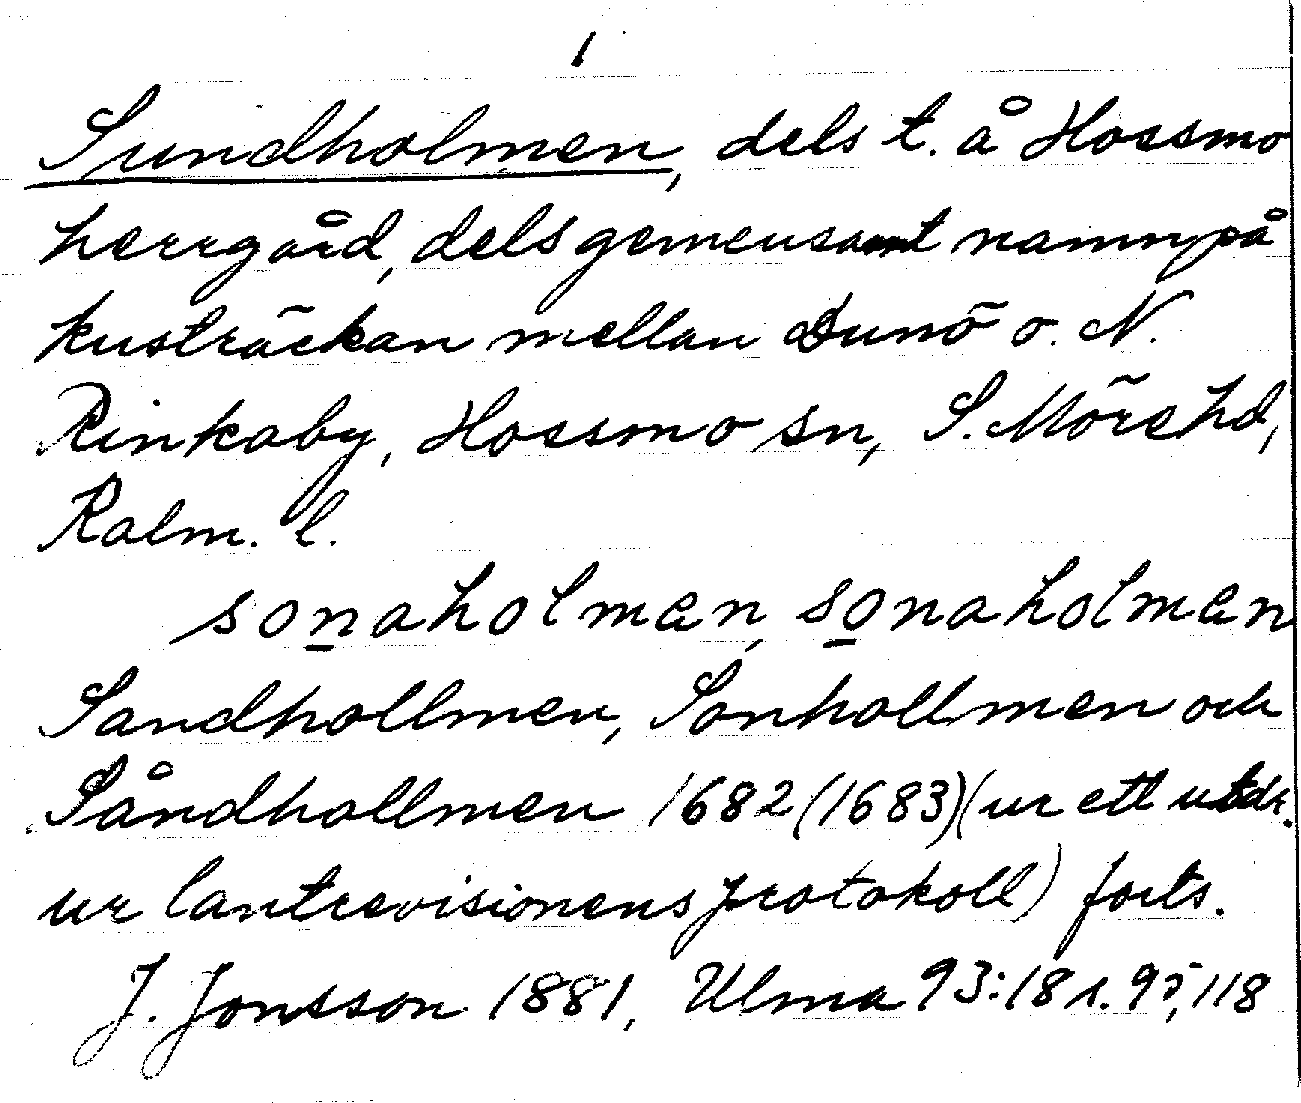 1
Sundholmen, dels t. å Hossmo
herrgård, dels gemensamt namn på
kusträckan mellan Dunö o. N.
Rinkaby, Hossmo sn, S. Möre hd,
Kalm. l.
sonaholmen, sonaholmen
Sandhollmen, Sonhollmen och
Såndhollmen 1682 (1683) (ur ett utdr.
ur lantrevisionens protokoll) forts.
J. Jonsson 1881, Ulma 93:18 s. 118